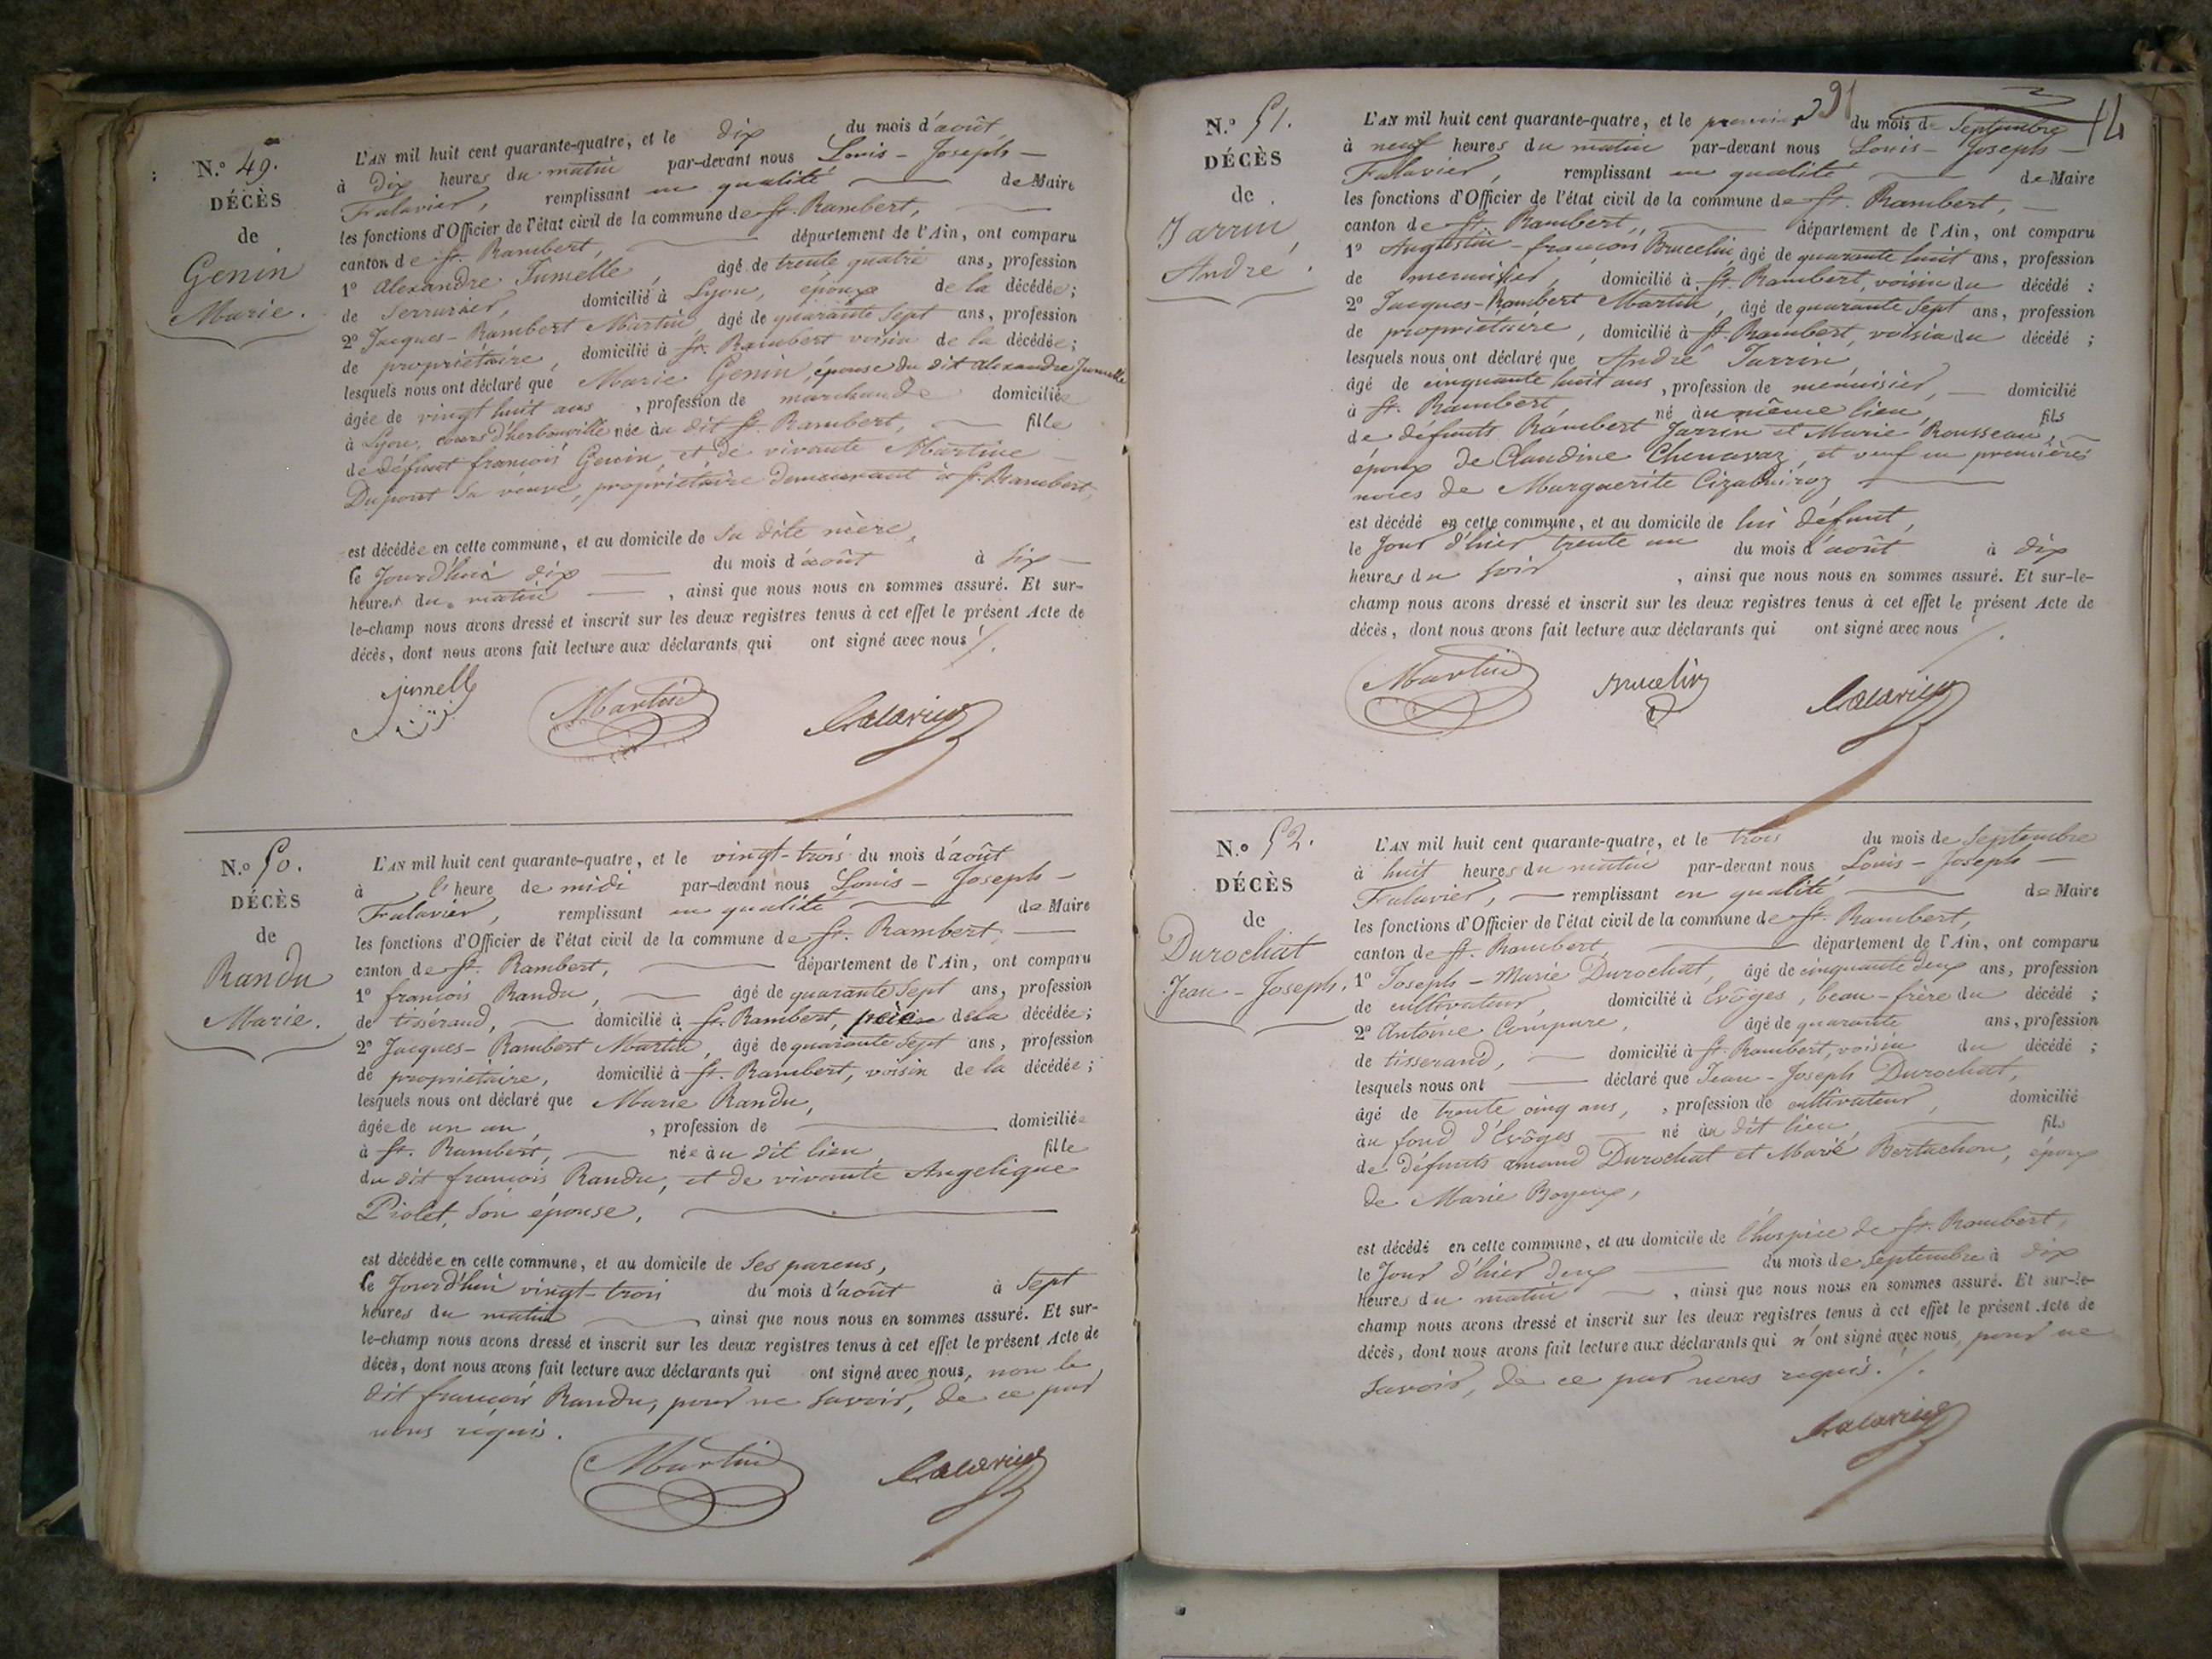 N.º 49.
DÉCÈS
de
Genin
Marie.
L'AN mil huit cent quarante-quatre, et le dix du mois d'août
à dix heures du matin par-devant nous Louis - Joseph -
Falavier, remplissant en qualité de Maire
les fonctions d'Officier de l'état civil de la commune de St. Rambert,
canton de St. Rambert, département de l'Ain, ont comparu
1º Alexandre Jumelle, âgé de trente quatre ans, profession
de Serrurier, domicilié à Lyon, époux de la décédée;
2º Jacques - Rambert Martin, âgé de quarante sept ans, profession
de propriétaire, domicilié à St. Rambert voisin de la décédée;
lesquels nous ont déclaré que Marie Genin, épouse du dit Alexandre Jumelle
âgée de vingt huit ans, profession de marchande domiciliée
à Lyon, cours d'herbouville née au dit St. Rambert, fille
de défunt françois Genin, et de vivante Martine
Dupont sa veuve, propriétaire demeurant à St. Rambert,
est décédée en cette commune, et au domicile de Sa dite mère,
le Jourd'hui dix du mois d'août à six
heures du matin, ainsi que nous nous en sommes assuré. Et sur-
le-champ nous avons dressé et inscrit sur les deux registres tenus à cet effet le présent Acte de
décès, dont nous avons fait lecture aux déclarants qui ont signé avec nous /.
jumelle Martin Falavier
N.º 50.
DÉCÈS
de
Randu
Marie.
L'AN mil huit cent quarante-quatre, et le vingt-trois du mois d'août
à l'heure de midi par-devant nous Louis - Joseph -
Falavier, remplissant en qualité de Maire
les fonctions d'Officier de l'état civil de la commune de St. Rambert,
canton de St. Rambert, département de l'Ain, ont comparu
1º françois Randu, âgé de quarante sept ans, profession
de tisserand, domicilié à St. Rambert, père de la décédée;
2º Jacques - Rambert Martin, âgé de quarante sept ans, profession
de propriétaire, domicilié à St. Rambert, voisin de la décédée;
lesquels nous ont déclaré que Marie Randu,
âgée de un an, profession de domiciliée
à St. Rambert, née au dit lieu, fille
du dit françois Randu, et de vivante Angelique
Piolet, son épouse.
est décédée en cette commune, et au domicile de Ses parens,
le Jourd'hui vingt-trois du mois d'août à Sept
heures du matin ainsi que nous nous en sommes assuré. Et sur-
le-champ nous avons dressé et inscrit sur les deux registres tenus à cet effet le présent Acte de
décès, dont nous avons fait lecture aux déclarants qui ont signé avec nous, non le
dit françois Randu, pour ne savoir, de ce par
nous requis.
Martin Falavier
91
14
N.º 51.
DÉCÈS
de
Jarrin,
André.
L'AN mil huit cent quarante-quatre, et le premier du mois de Septembre
à neuf heures du matin par-devant nous Louis - Joseph -
Falavier, remplissant en qualité de Maire
les fonctions d'Officier de l'état civil de la commune de St. Rambert,
canton de St. Rambert, département de l'Ain, ont comparu
1º Augustin - françois Brucelin, âgé de quarante huit ans, profession
de menuisier, domicilié à St. Rambert, voisin du décédé;
2º Jacques - Rambert Martin, âgé de quarante Sept ans, profession
de propriétaire, domicilié à St. Rambert, voisin du décédé;
lesquels nous ont déclaré que André Jarrin
âgé de cinquante huit ans, profession de menuisier, domicilié
à St. Rambert, né au même lieu, fils
de défunts Rambert Jarrin et Marie Rousseau,
époux de Claudine Chenavaz, et veuf en premières
noces de Marguerite
est décédé en cette commune, et au domicile de lui défunt,
le Jour d'hier trente un du mois d'août à dix
heures du soir, ainsi que nous nous en sommes assuré. Et sur-le-
champ nous avons dressé et inscrit sur les deux registres tenus à cet effet le présent Acte de
décès, dont nous avons fait lecture aux déclarants qui ont signé avec nous /.
Martin Brucelin Falavier
N.º 52.
DÉCÈS
de
Durochat
Jean - Joseph.
L'AN mil huit cent quarante-quatre, et le trois du mois de Septembre
à huit heures du matin par-devant nous Louis - Joseph -
Falavier, remplissant en qualité de Maire
les fonctions d'Officier de l'état civil de la commune de St. Rambert,
canton de St. Rambert, département de l'Ain, ont comparu
1º Joseph - Marie Durochat, âgé de cinquante deux ans, profession
de cultivateur, domicilié à Evôges, beau-frère du décédé;
2º Antoine Compare, âgé de quarante ans, profession
de tisserand, domicilié à St. Rambert, voisin du décédé;
lesquels nous ont déclaré que Jean - Joseph Durochat,
âgé de trente cinq ans, profession de cultivateur, domicilié
au fond d'Evôges né au dit lieu, fils
de défunts amand Durochat et Marie Bertachon, époux
de Marie Boyeux,
est décédé en cette commune, et au domicile de l'hospice de St. Rambert,
le Jour d'hier deux du mois de Septembre à dix
heures du matin, ainsi que nous nous en sommes assuré. Et sur-le-
champ nous avons dressé et inscrit sur les deux registres tenus à cet effet le présent Acte de
décès, dont nous avons fait lecture aux déclarants qui n'ont signé avec nous, pour ne
savoir, de ce par nous requis. /.
Falavier